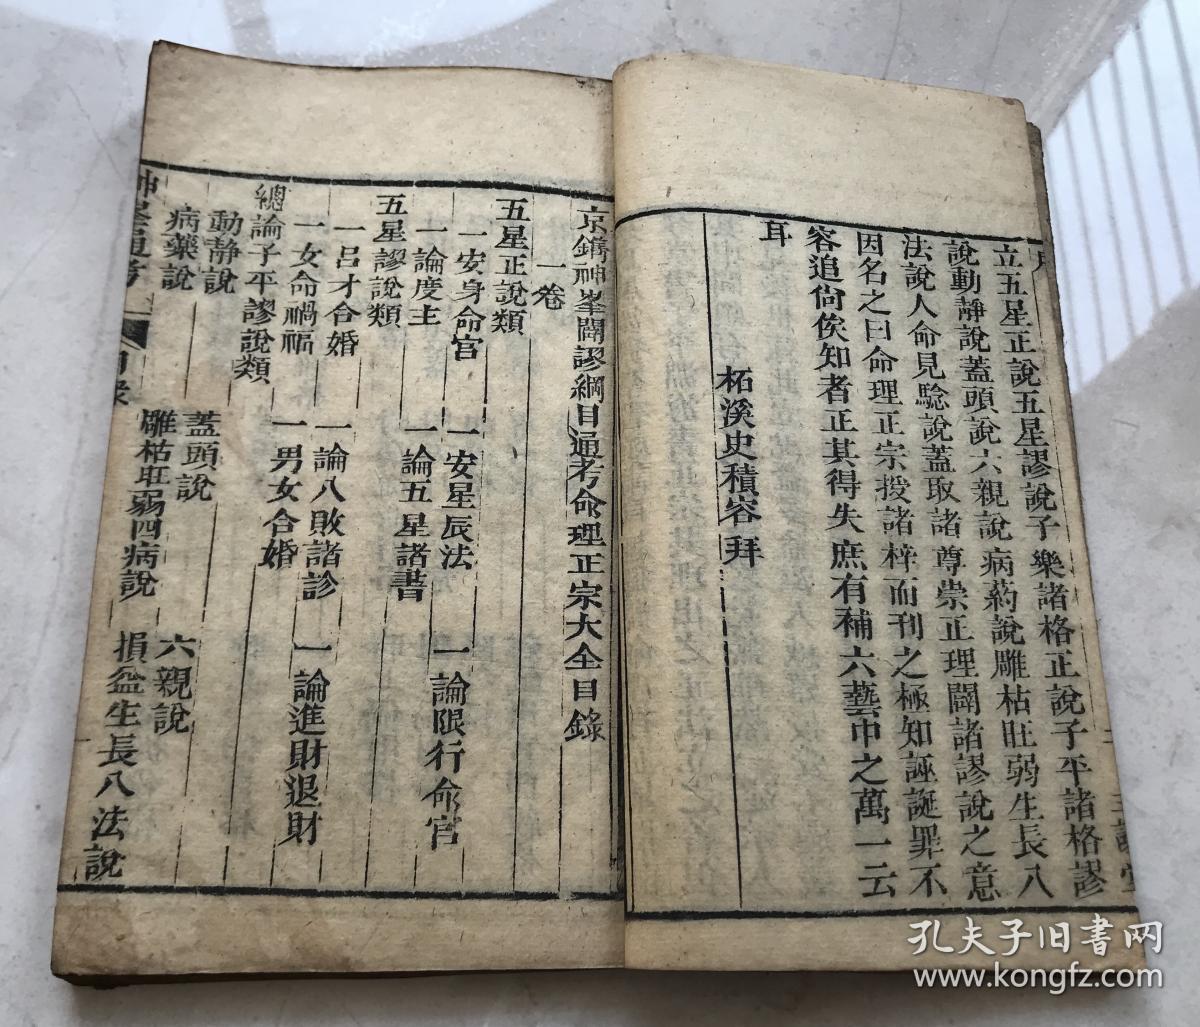 立五星正說五星謬說子樂諸格正說子平諸格謬
說動靜說蓋頭說六親說病葯說雕枯旺弱生長八
法說人命見驗說蓋取諸尊崇正理闢諸謬說之意
因名之曰命理正宗授諸梓而刊之極知誣誕罪不
容追尙俟知者正其得失庶有補六藝中之萬一云
耳
柘溪史積容拜
京鐫神峯闢謬綱目通考命理正宗大全目錄
一卷
五星正說類
一安身命宮 一安星辰法 一論限行命宮
一論度主 一論五星諸書
五星謬說類
一呂才合婚 一論八敗諸診 一論進財退財
一女命禍福 一男女合婚
總論子平謬說類
動靜說 蓋頭說 六親說
病藥說 雕枯旺弱四病說 損益生長八法說
目錄
孔夫子旧书网
www.kongfz.com